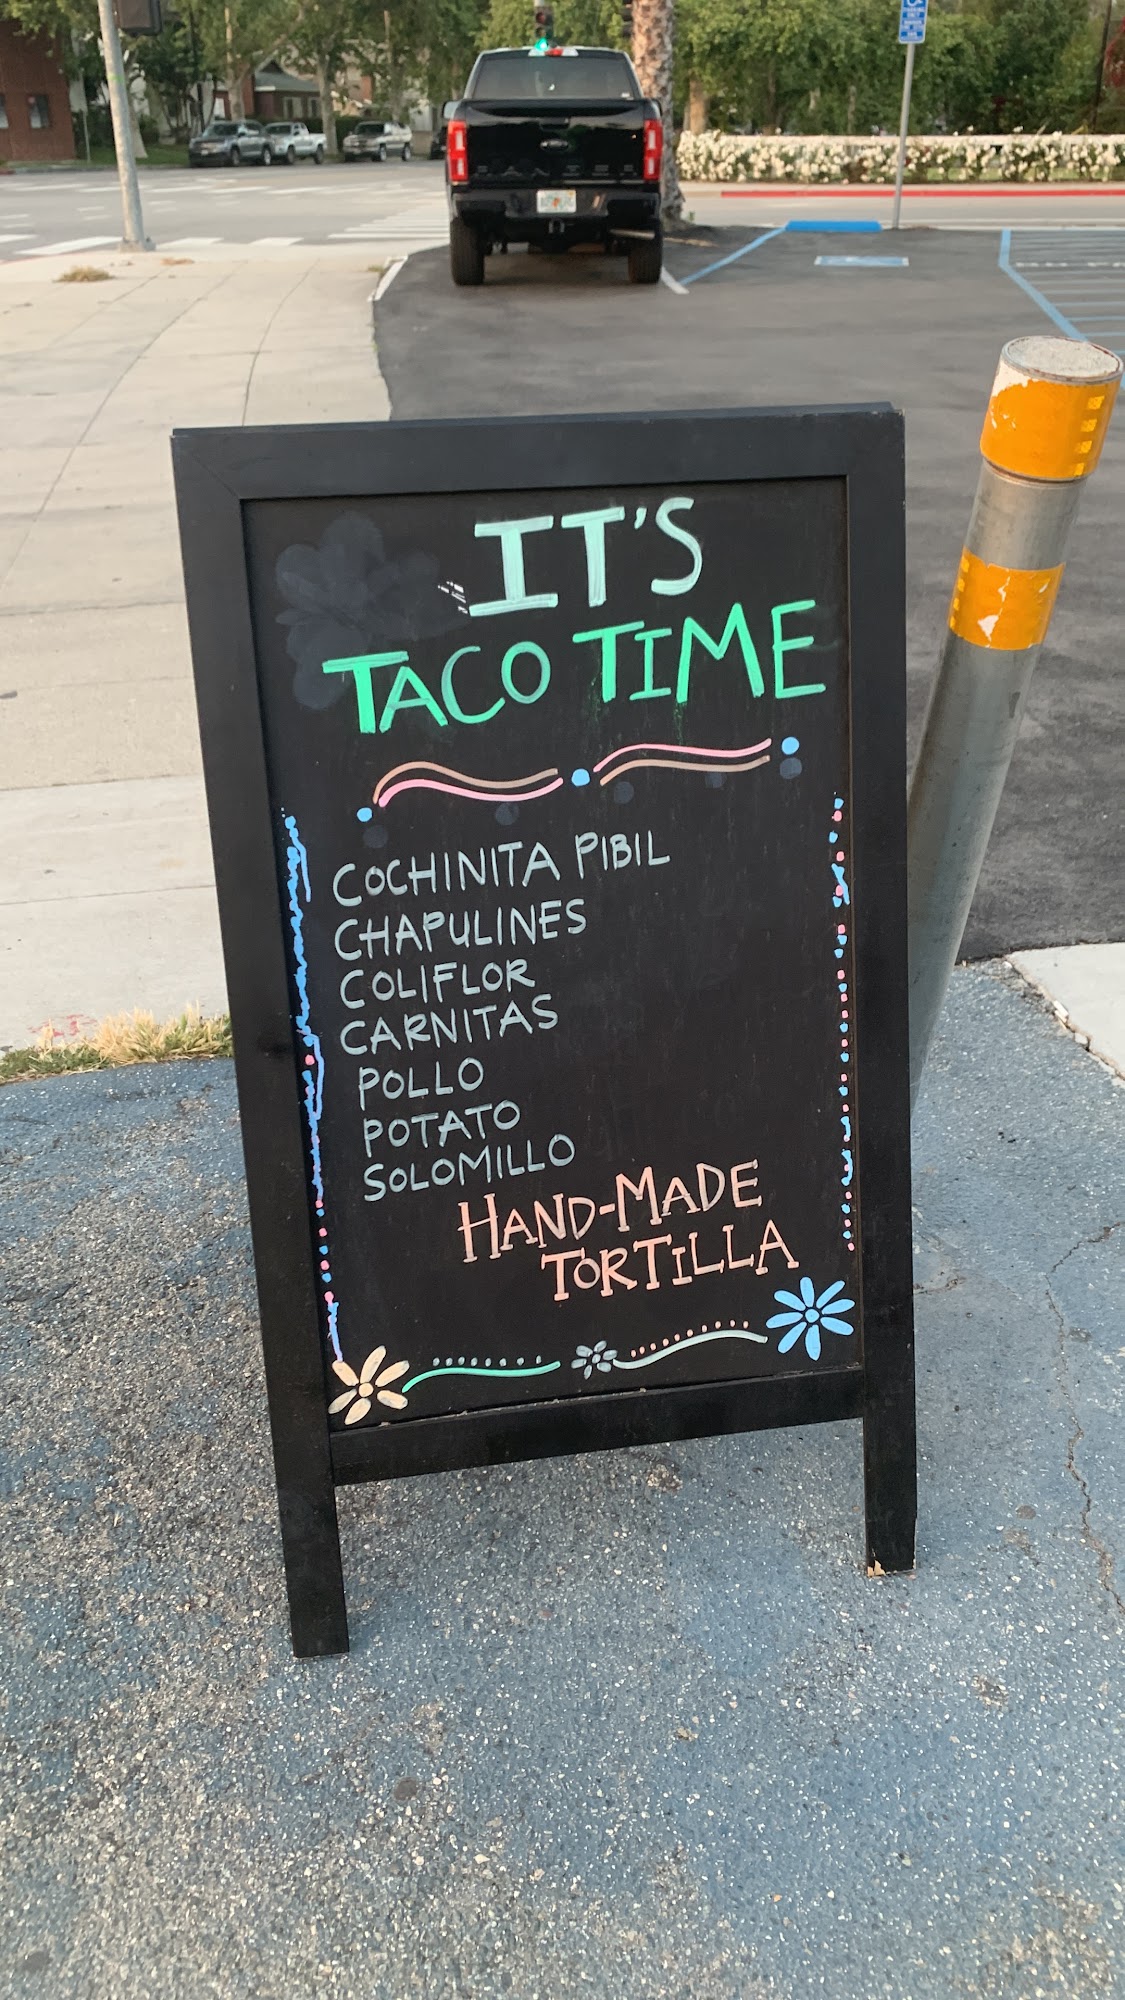 IT'S
TACO TIME
COCHINITA PIBIL
CHAPULINES
COLIFLOR
CARNITAS
POLLO
POTATO
SOLOMILLO
HAND-MADE
TORTILLA